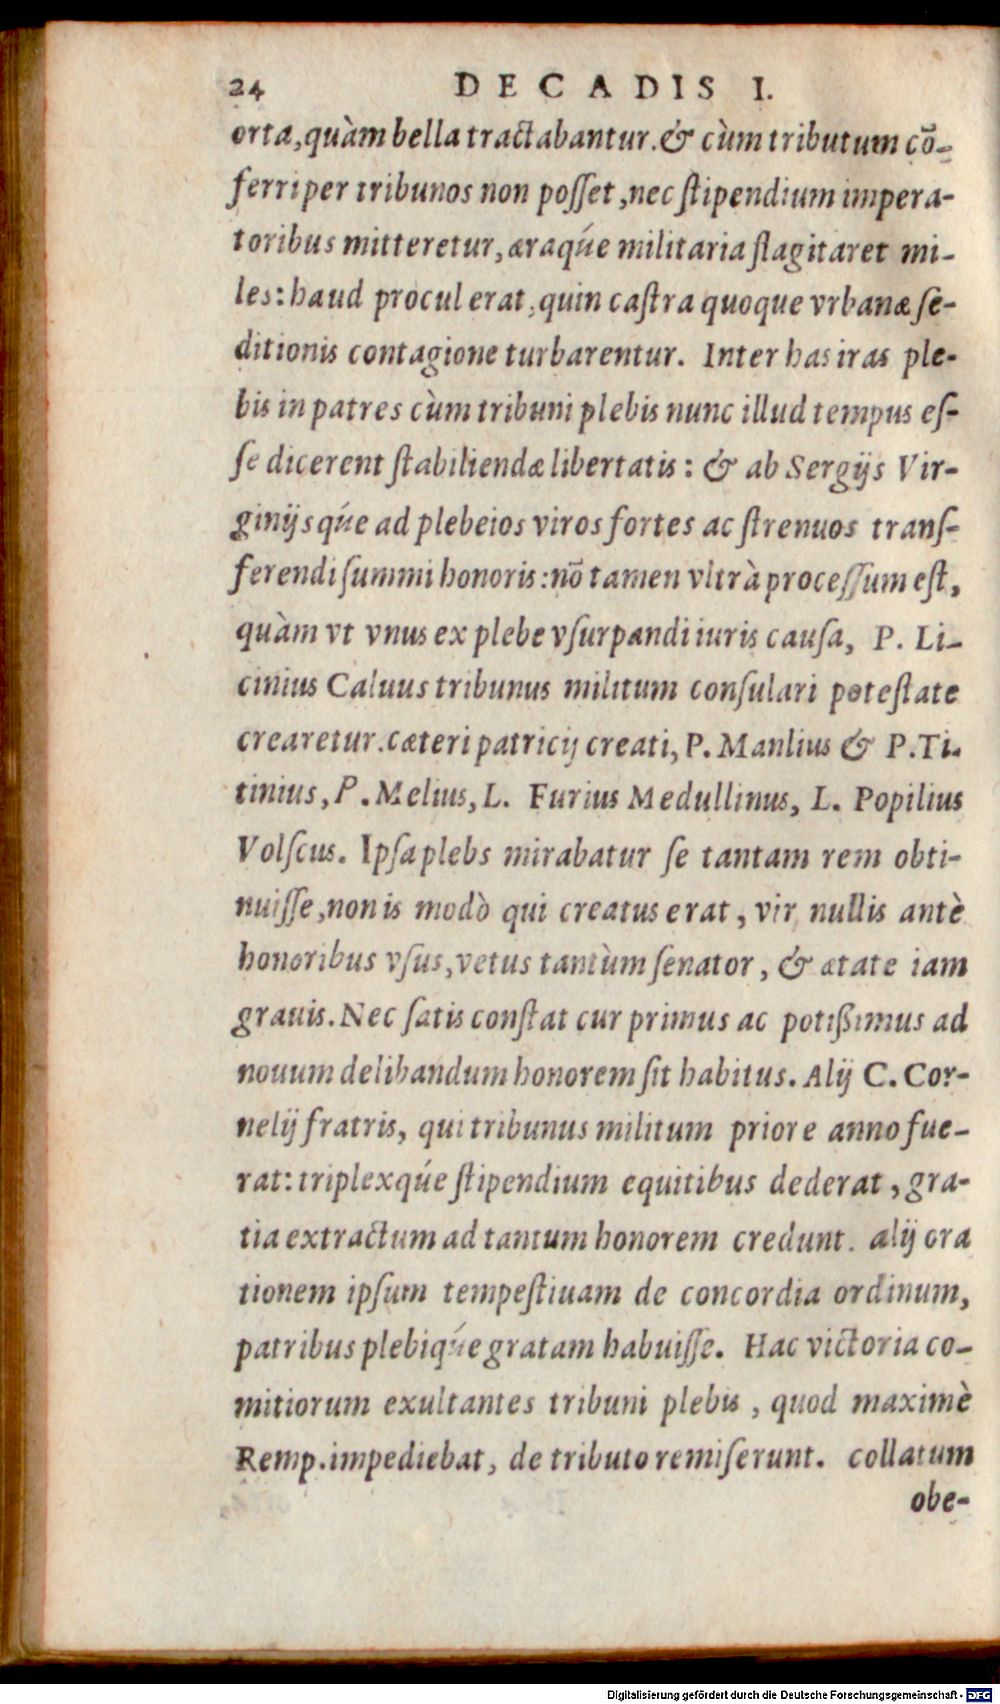 24 DECADIS I.
orta, quàm bella tractabantur. & cùm tributum cō-
ferri per tribunos non posset, nec stipendium impera-
toribus mitteretur, æraqúe militaria flagitaret mi-
les: haud procul erat, quin castra quoque vrbanæ se-
ditionis contagione turbarentur. Inter has iras ple-
bis in patres cùm tribuni plebis nunc illud tempus es-
se dicerent stabiliendæ libertatis: & ab Sergijs Vir-
ginijsqúe ad plebeios viros fortes ac strenuos trans-
ferendi summi honoris: nō tamen vltrà processum est,
quàm vt vnus ex plebe vsurpandi iuris causa, P. Li-
cinius Caluus tribunus militum consulari potestate
crearetur. cæteri patricij creati, P. Manlius & P. Ti-
tinius, P. Melius, L. Furius Medullinus, L. Popilius
Volscus. Ipsa plebs mirabatur se tantam rem obti-
nuisse, non is modò qui creatus erat, vir nullis antè
honoribus vsus, vetus tantùm senator, & ætate iam
grauis. Nec satis constat cur primus ac potißimus ad
nouum delibandum honorem sit habitus. Alij C. Cor-
nelij fratris, qui tribunus militum priore anno fue-
rat: triplexqúe stipendium equitibus dederat, gra-
tia extractum ad tantum honorem credunt. alij ora
tionem ipsum tempestiuam de concordia ordinum,
patribus plebiqúe gratam habuisse. Hac victoria co-
mitiorum exultantes tribuni plebis, quod maximè
Remp. impediebat, de tributo remiserunt. collatum
obe-
Digitalisierung gefördert durch die Deutsche Forschungsgemeinschaft - DFG